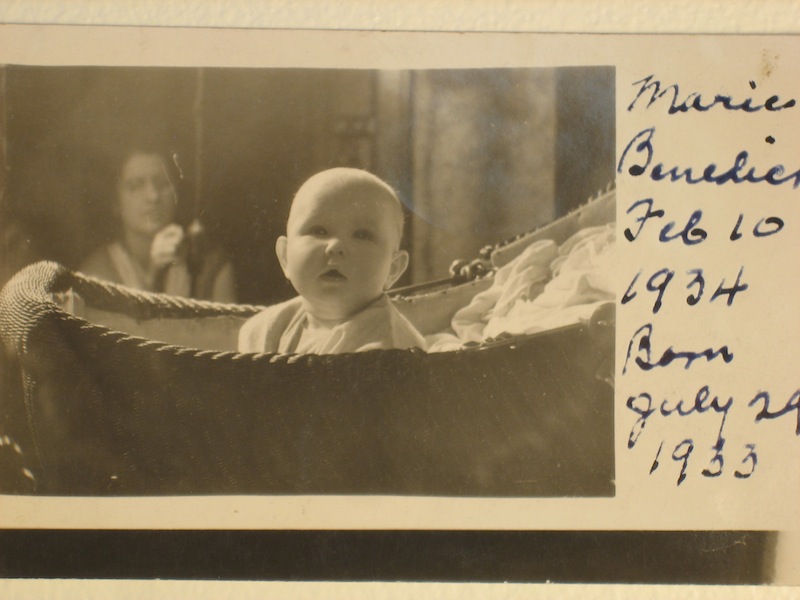 Marie
Benedict
Feb 10
1934
Born
July 29
1933